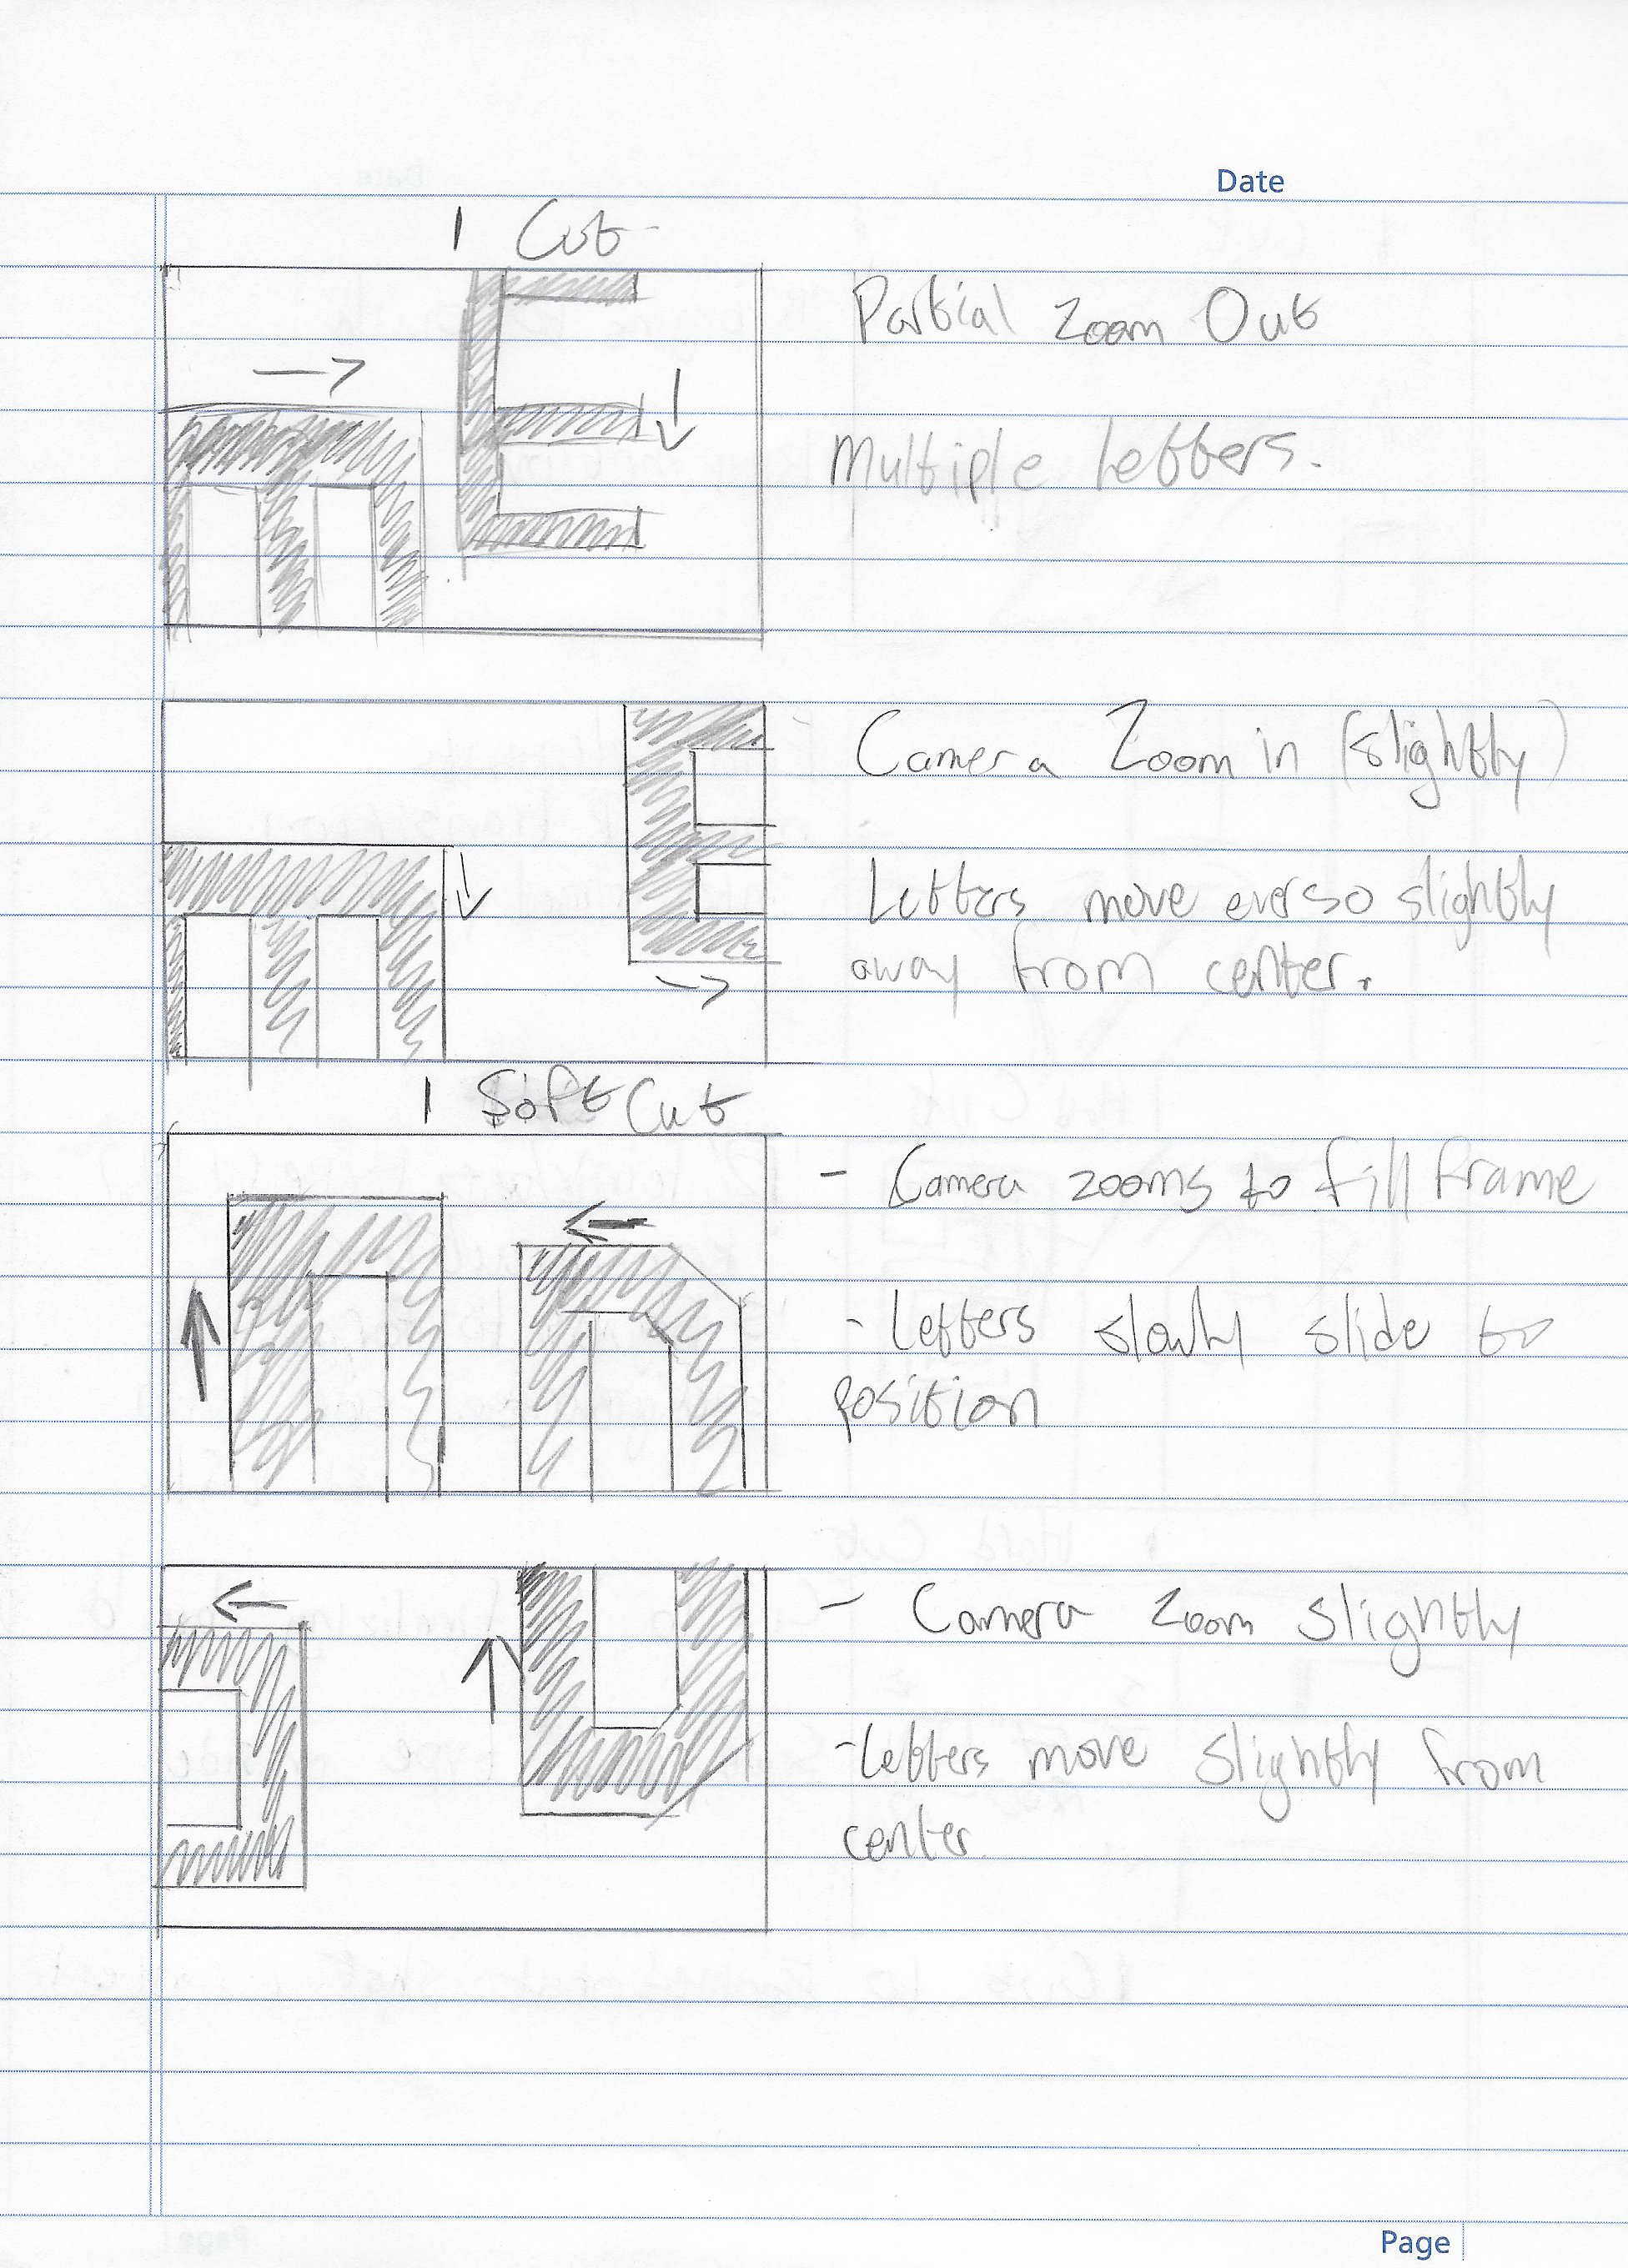 Date
1 Cut
Partial Zoom Out
Multiple Letters.
Camera Zoom in (slightly)
Letters move ever so slightly
away from center.
1 Soft Cut
- Camera zooms to fill frame
- Letters slowly slide to
position
- Camera Zoom Slightly
- Letters move slightly from
center.
Page